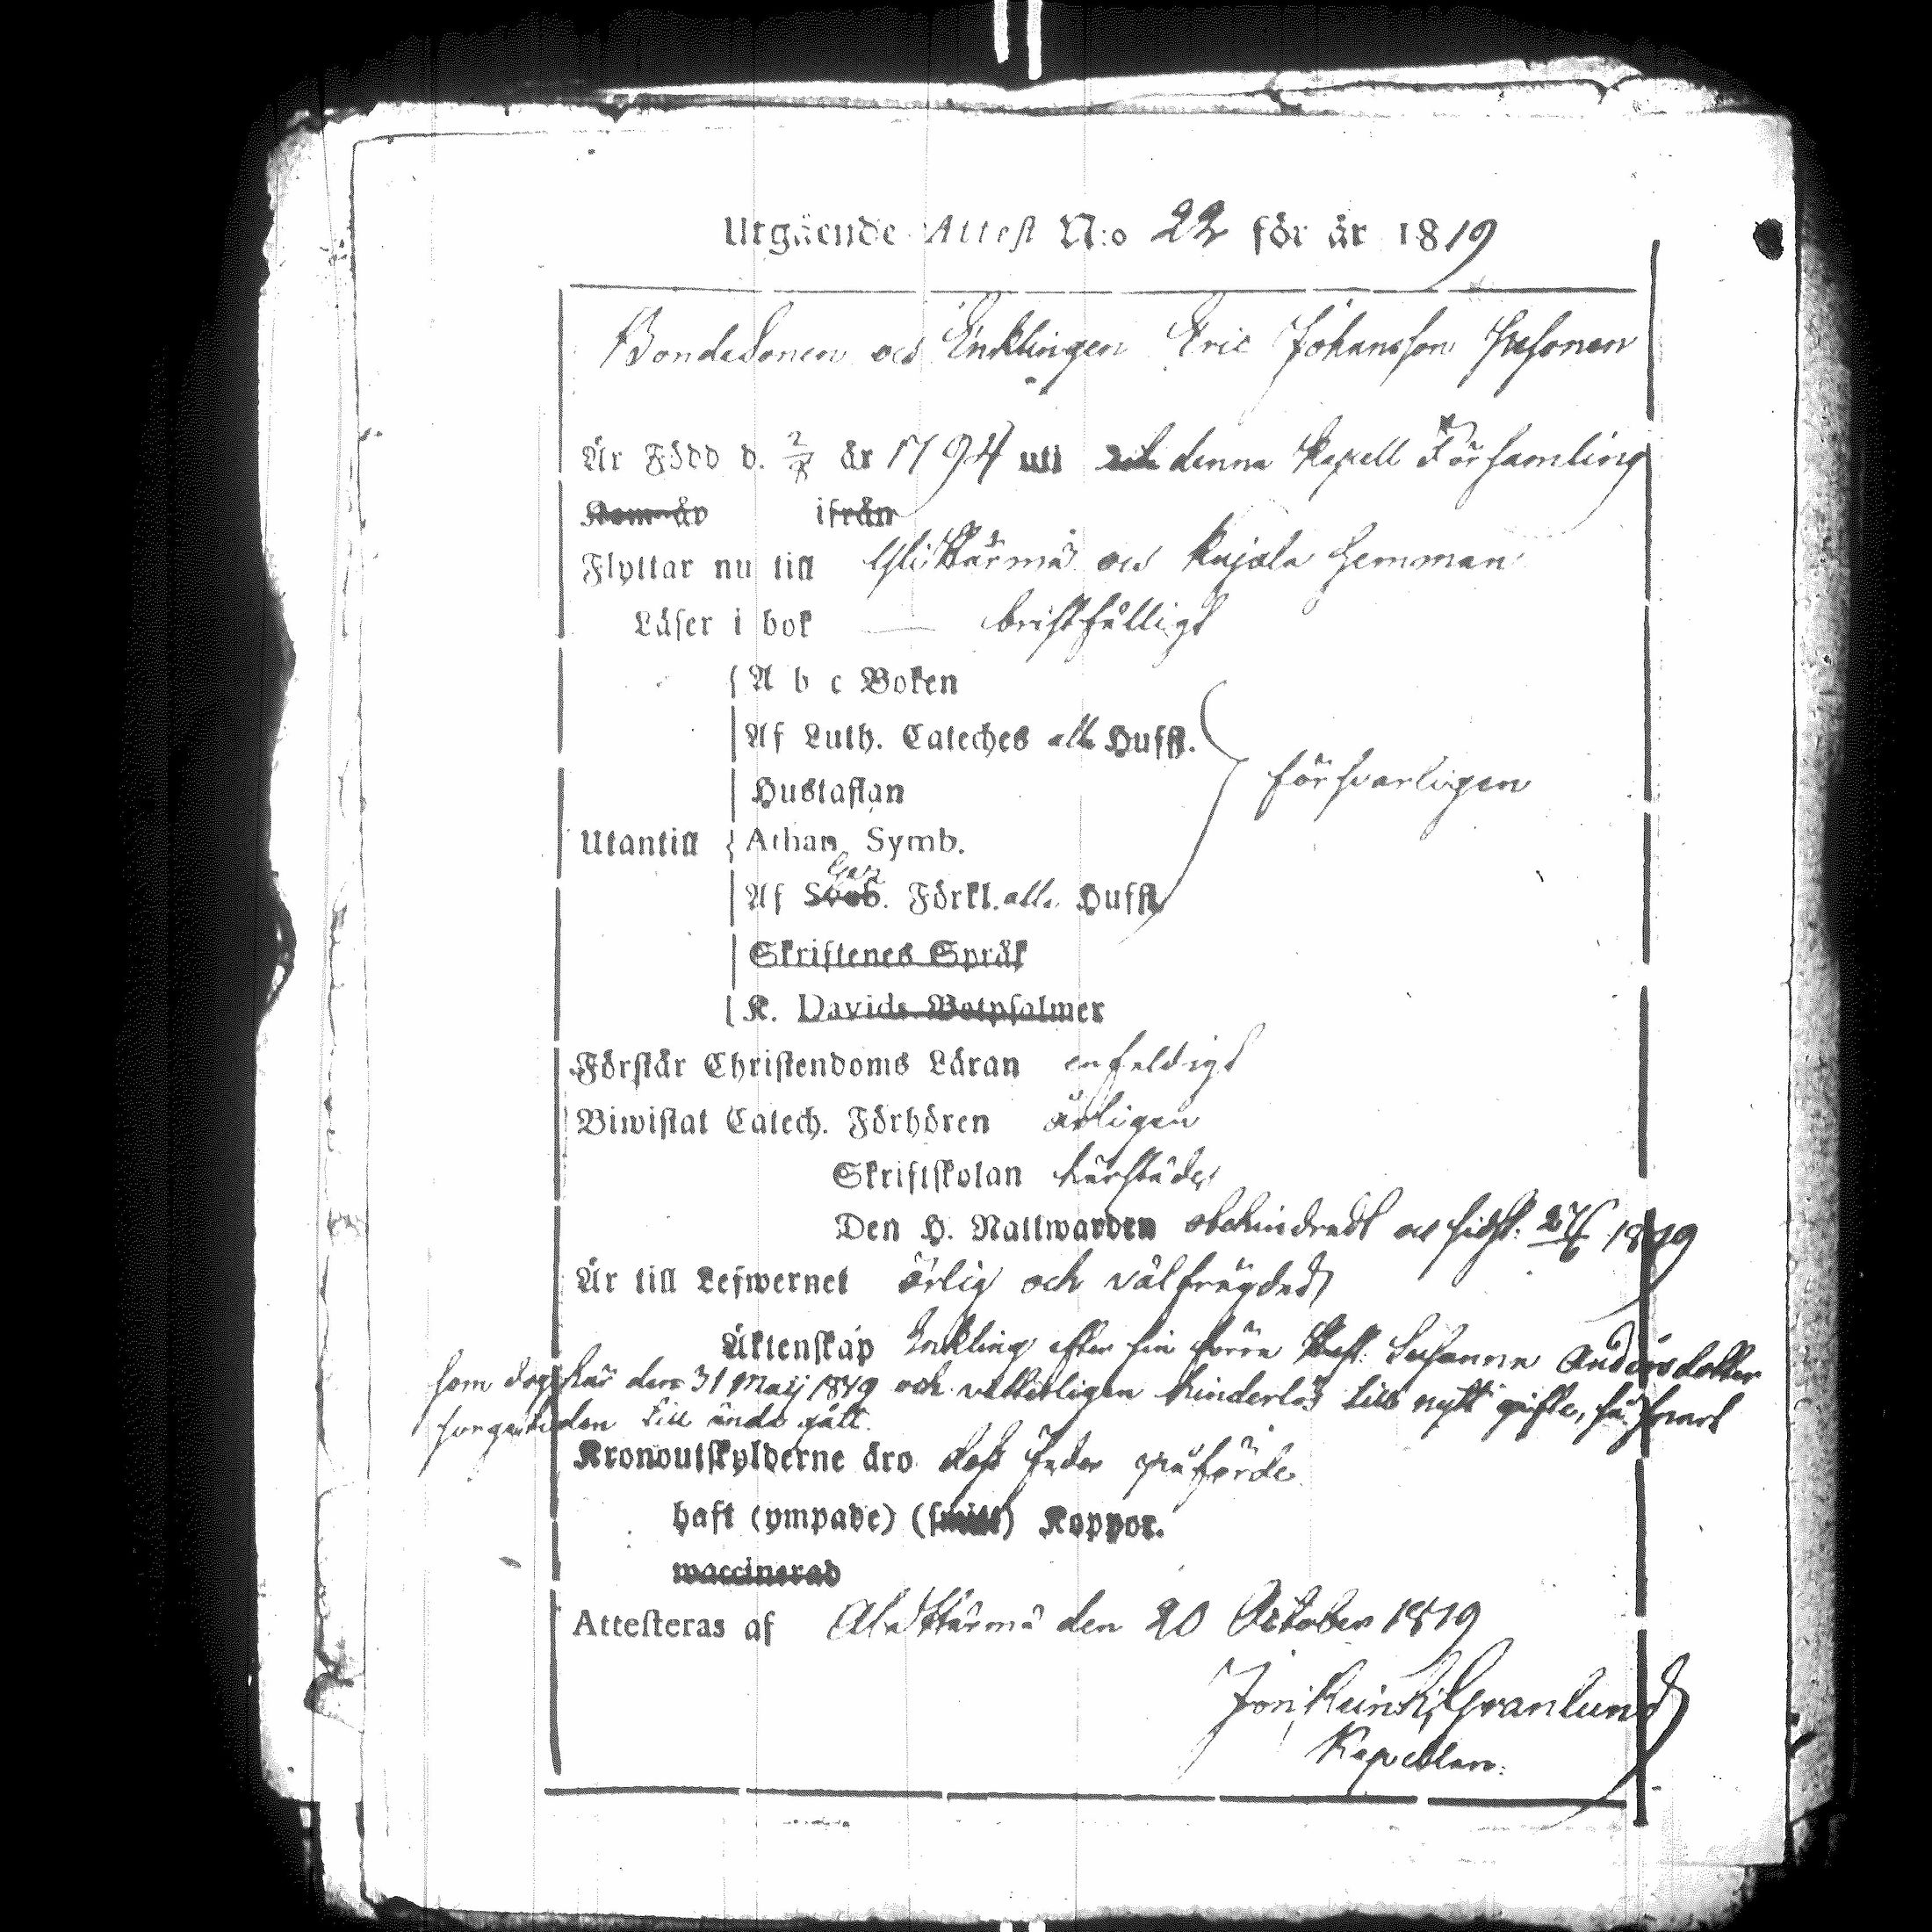 Utgående Attest N:o 22 för år 1819
Bondesonen och Enklingen Eric Johansson
Är Född d. 2/8 år 1794 uti denna Kapell Församling
Kom år ifrån
Flyttar nu till Yli Härmä och Kujala Hemman
Läser i bok — bristfälligt
A b c Boken
Af Luth. Cateches alla Hufft.
Hustaflan
försvarligen
Utantill Athan Symb.
Af Förkl. alla Hufft
Skriftenes Språk
K. Davids Botpsalmer
Förstår Christendoms Läran enfaldigt
Biwistat Catech. Förhören årligen
Skriftskolan härstädes
Den H. Nattwarden obehindradt och sidst. 1819
Är till Lefwernet ärlig och välfrägdad
Äktenskap Enkling efter sin förra Hust. Susanna Andersdotter
som dog här den 31 Maij 1819 och vetterligen hinderlös till nytt gifte, så snart
sorgetiden till ända gått.
Kronoutskylderne äro dess Fader påförde
haft (ympade) (smitt) Koppor.
waccinerad
Attesteras af Ala Härmä den 20 October 1819
Granlund
Kapellan.